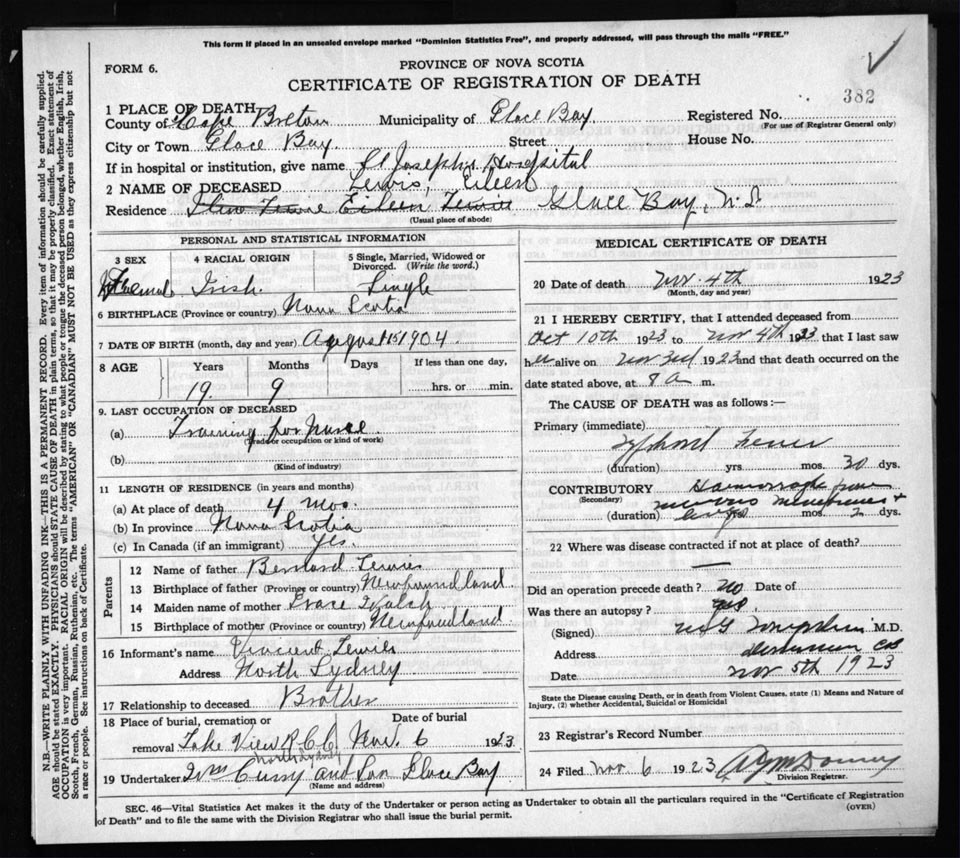 This form if placed in an unsealed envelope marked "Dominion Statistics Free", and properly addressed, will pass through the mails "FREE."
FORM 6.
PROVINCE OF NOVA SCOTIA
CERTIFICATE OF REGISTRATION OF DEATH
382
1 PLACE OF DEATH
County of Cape Breton Municipality of Glace Bay Registered No.
(For use of Registrar General only)
City or Town Glace Bay Street House No.
If in hospital or institution, give name St Joseph's Hospital
2 NAME OF DECEASED Lewis, Eileen
Residence Eileen Glace Bay, N.S.
(Usual place of abode)
PERSONAL AND STATISTICAL INFORMATION
3 SEX 4 RACIAL ORIGIN 5 Single, Married, Widowed or Divorced. (Write the word.)
Irish Single
6 BIRTHPLACE (Province or country) Nova Scotia
7 DATE OF BIRTH (month, day and year) August 15 1904
8 AGE Years Months Days If less than one day,
19 9 hrs. or min.
9. LAST OCCUPATION OF DECEASED
(a) Training for Nurse
(Trade or occupation or kind of work)
(b)
(Kind of industry)
11 LENGTH OF RESIDENCE (in years and months)
(a) At place of death 4 mos.
(b) In province Nova Scotia
(c) In Canada (if an immigrant) Yes.
Parents
12 Name of father Bernard Lewis
13 Birthplace of father (Province or country) Newfoundland
14 Maiden name of mother Grace Walsh
15 Birthplace of mother (Province or country) Newfoundland
16 Informant's name Vincent Lewis
Address North Sydney
17 Relationship to deceased Brother
18 Place of burial, cremation or removal Lake View R.C.C. North Sydney Date of burial Nov. 6 1923
19 Undertaker Wm Curry and Son Glace Bay
(Name and address)
MEDICAL CERTIFICATE OF DEATH
20 Date of death Nov. 4th 1923
(Month, day and year)
21 I HEREBY CERTIFY, that I attended deceased from
Oct 10th 1923 to Nov 4th 1923 that I last saw
her alive on Nov 3rd 1923 and that death occurred on the
date stated above, at 8 a m.
The CAUSE OF DEATH was as follows:—
Primary (immediate)
Typhoid Fever
(duration) yrs. mos. 30 dys.
CONTRIBUTORY Hemorrhage from
(Secondary) mucous membranes +
(duration) yrs mos. 2 dys.
22 Where was disease contracted if not at place of death?
—
Did an operation precede death? no Date of
Was there an autopsy? yes
(Signed) M.D.
Address
Date Nov 5th 1923
State the Disease causing Death, or in death from Violent Causes, state (1) Means and Nature of Injury, (2) whether Accidental, Suicidal or Homicidal
23 Registrar's Record Number
24 Filed Nov. 6 1923
Division Registrar.
SEC. 46—Vital Statistics Act makes it the duty of the Undertaker or person acting as Undertaker to obtain all the particulars required in the "Certificate of Registration
of Death" and to file the same with the Division Registrar who shall issue the burial permit.
(OVER)
N.B.—WRITE PLAINLY WITH UNFADING INK—THIS IS A PERMANENT RECORD. Every item of information should be carefully supplied.
AGE should be stated EXACTLY. PHYSICIANS should STATE CAUSE OF DEATH in plain terms, so that it may be properly classified. Exact statement of
OCCUPATION is very important. RACIAL ORIGIN will be described by stating to what people or tongue the deceased person belonged, whether English, Irish,
Scotch, French, German, Russian, Ruthenian, etc. The terms "AMERICAN" OR "CANADIAN" MUST NOT BE USED as they express citizenship but not
a race or people. See instructions on back of Certificate.